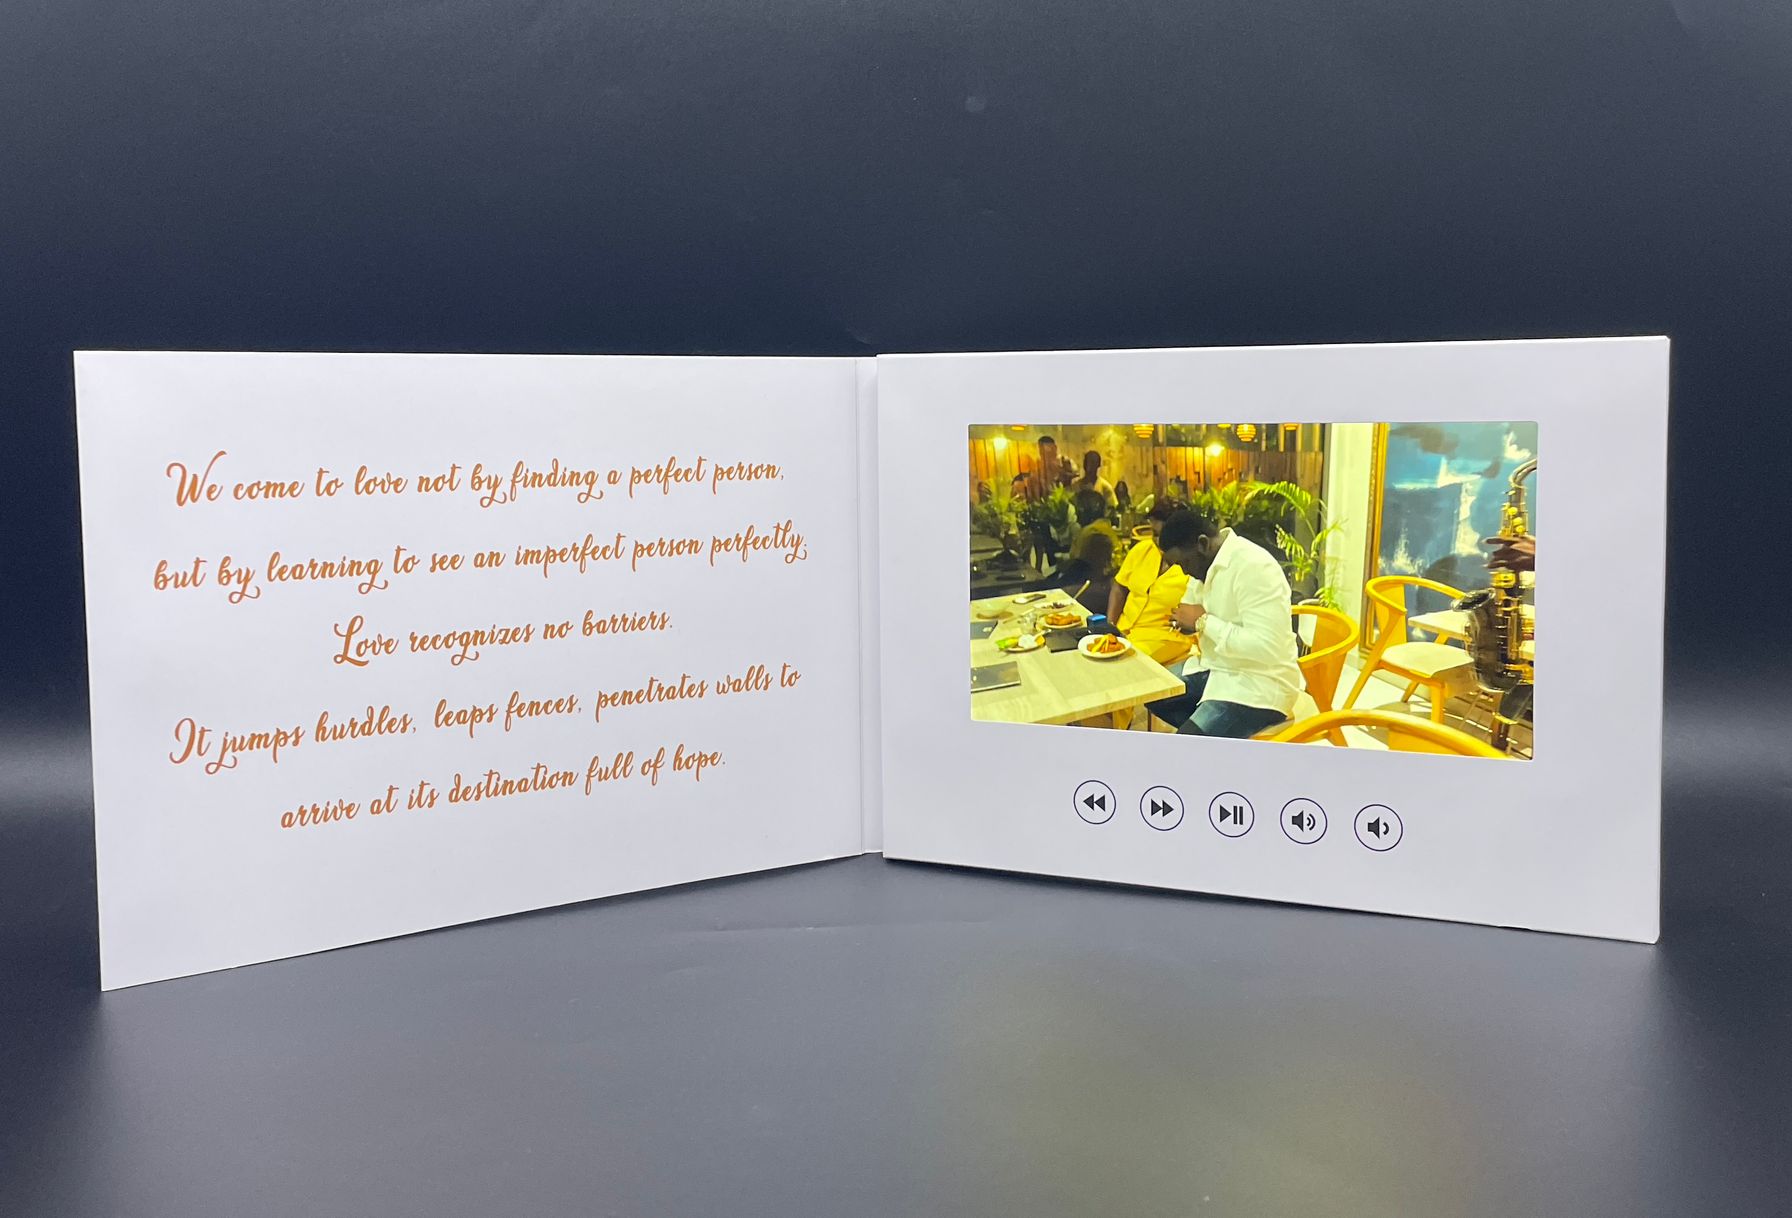 We come to love not by finding a perfect person,
but by learning to see an imperfect person perfectly.
Love recognizes no barriers.
It jumps hurdles, leaps fences, penetrates walls to
arrive at its destination full of hope.